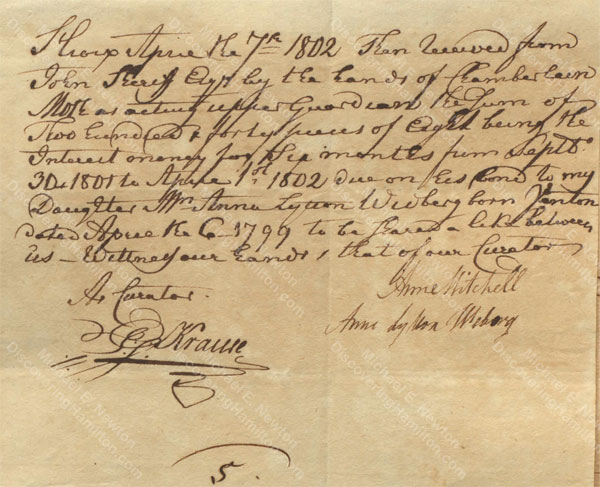 St Croix Aprie the 7th 1802 Then received from
John Esqr by the hands of Chamberlain
as acting upper Guardian the Sum of
Two hundred & forty pieces of Eight being the
Interest money for Six months from Septbr
30th 1801 to Aprie 1st 1802 due on his bond to my
Daughter Mrs Anna Lytton Wiberg born Venton
dated Aprie the 6 1799 to be shared a like between
us – Witness our hands & that of our Curator
As Curator.
Anne Mitchell
Anna Lytton Wiberg
Krause
5.